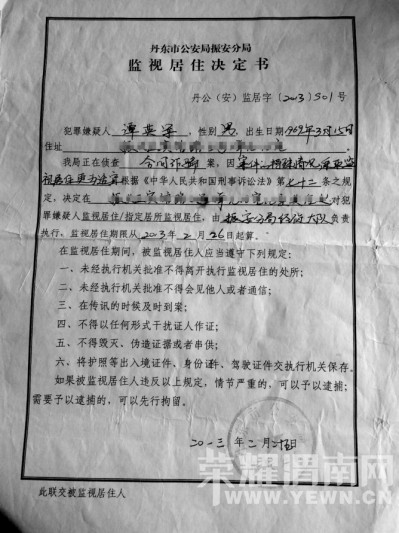 丹东市公安局振安分局
监视居住决定书
丹公(安)监居字(2013)501号
犯罪嫌疑人 谭 ，性别 男，出生日期1969年3月15日
住址
我局正在侦查 合同诈骗 案，因 案件 特殊情况
视居住更为适宜 根据《中华人民共和国刑事诉讼法》第七十二条之规
定，决定在 对犯
罪嫌疑人监视居住/指定居所监视居住，由 振安分局经侦大队 负责
执行，监视居住期限从2013年2月26日起算。
在监视居住期间，被监视居住人应当遵守下列规定：
一、未经执行机关批准不得离开执行监视居住的处所；
二、未经执行机关批准不得会见他人或者通信；
三、在传讯的时候及时到案；
四、不得以任何形式干扰证人作证；
五、不得毁灭、伪造证据或者串供；
六、将护照等出入境证件、身份证件、驾驶证件交执行机关保存。
如果被监视居住人违反以上规定，情节严重的，可以予以逮捕；
需要予以逮捕的，可以先行拘留。
二〇一三年二月 日
此联交被监视居住人
荣耀渭南网
WWW.YEWN.CN